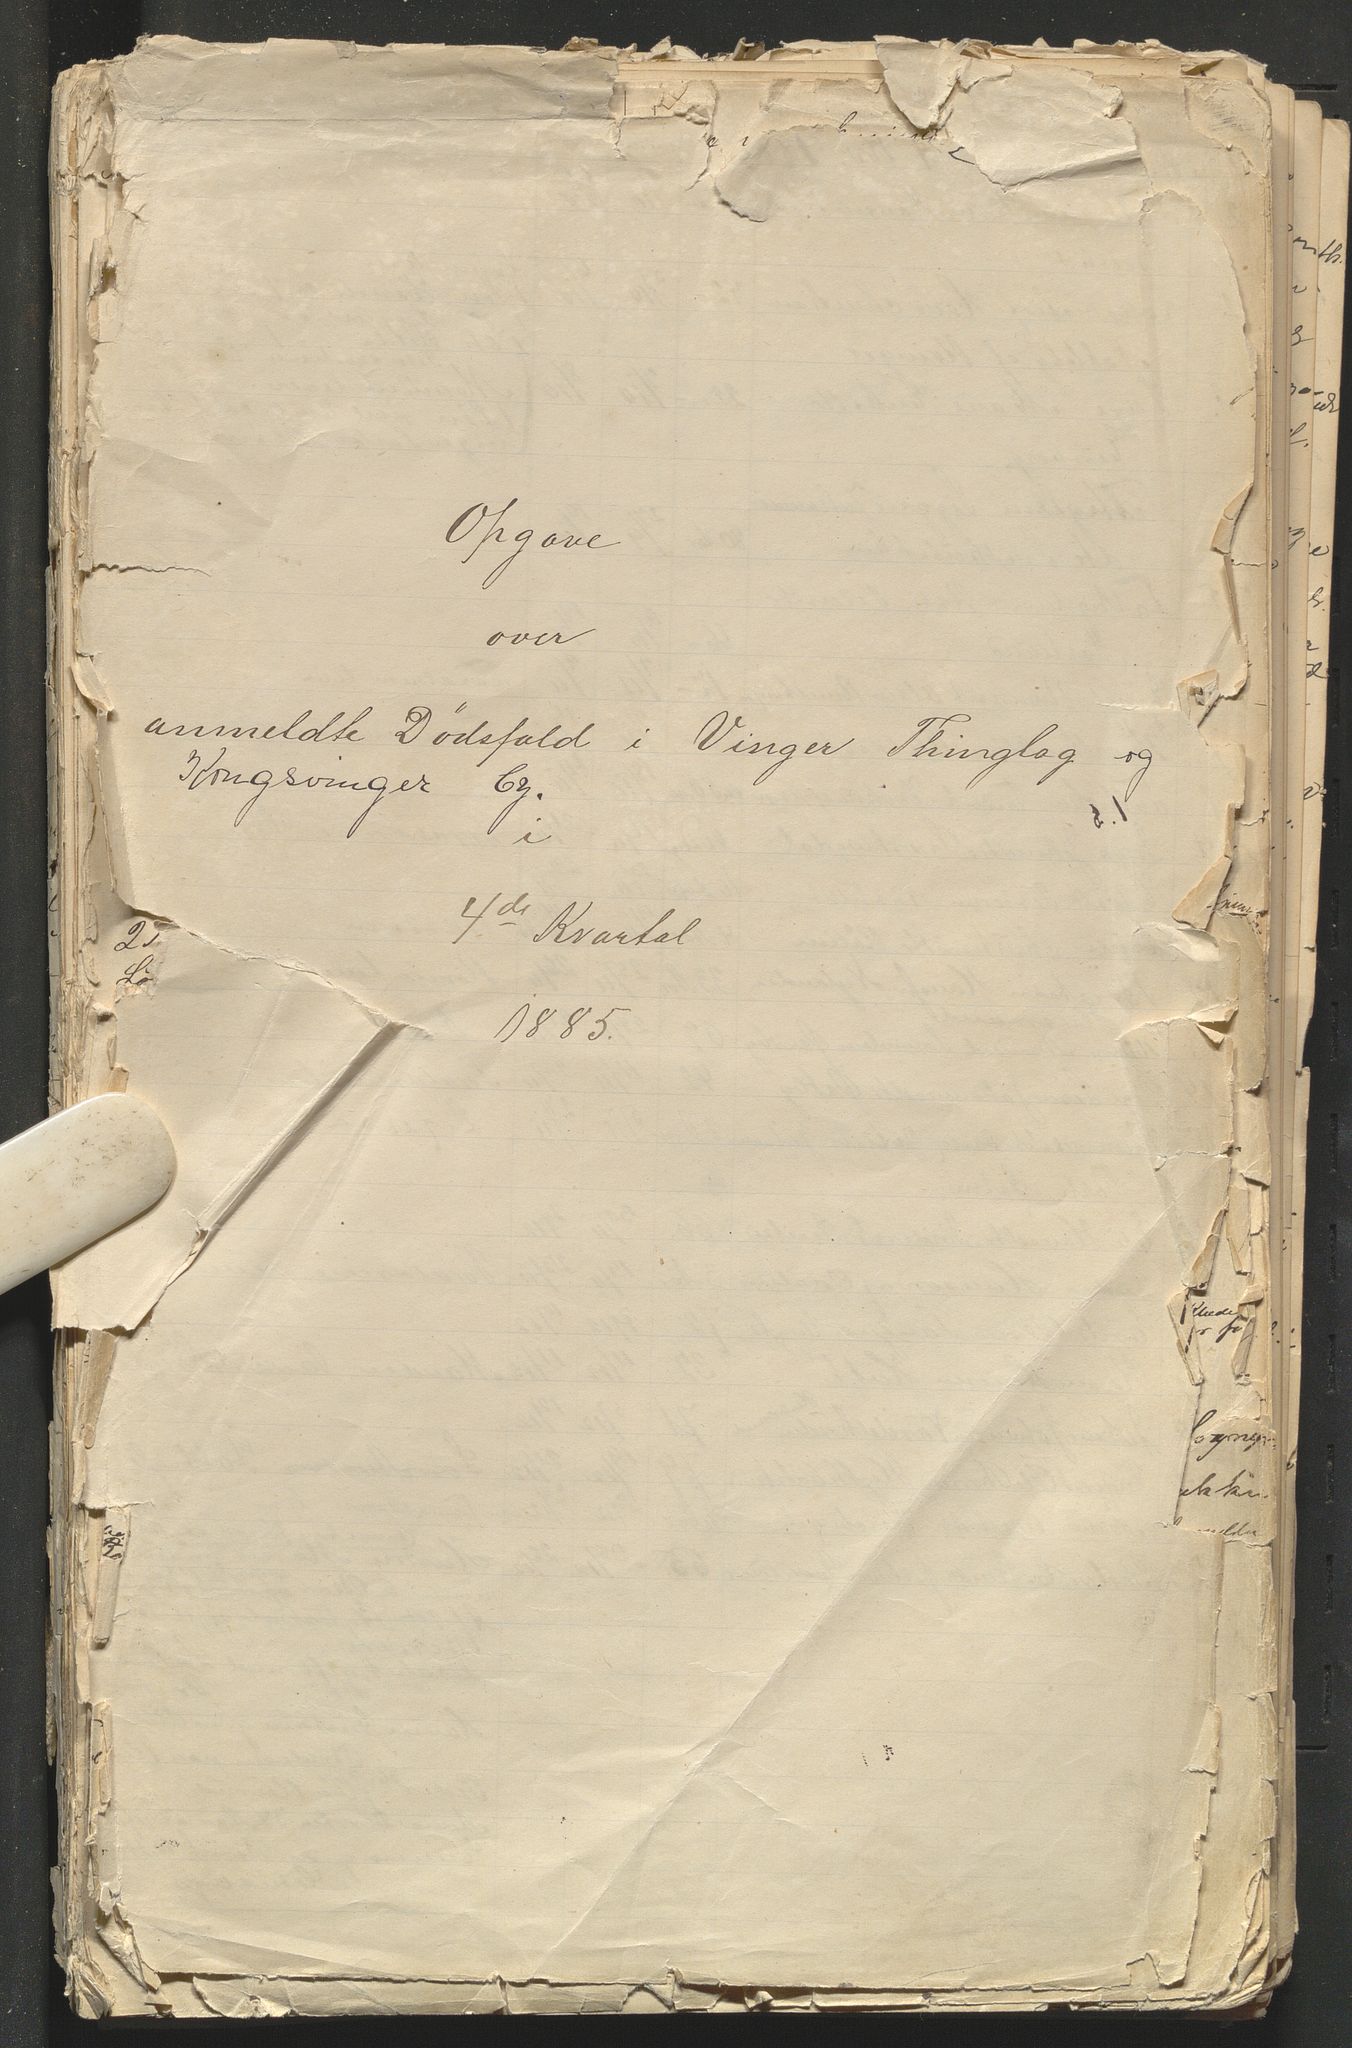 Opgave
over
anmeldte Dödsfald i Vinger Thinglag og
Kongsvinger By.
i
4de Kvartal
1885.